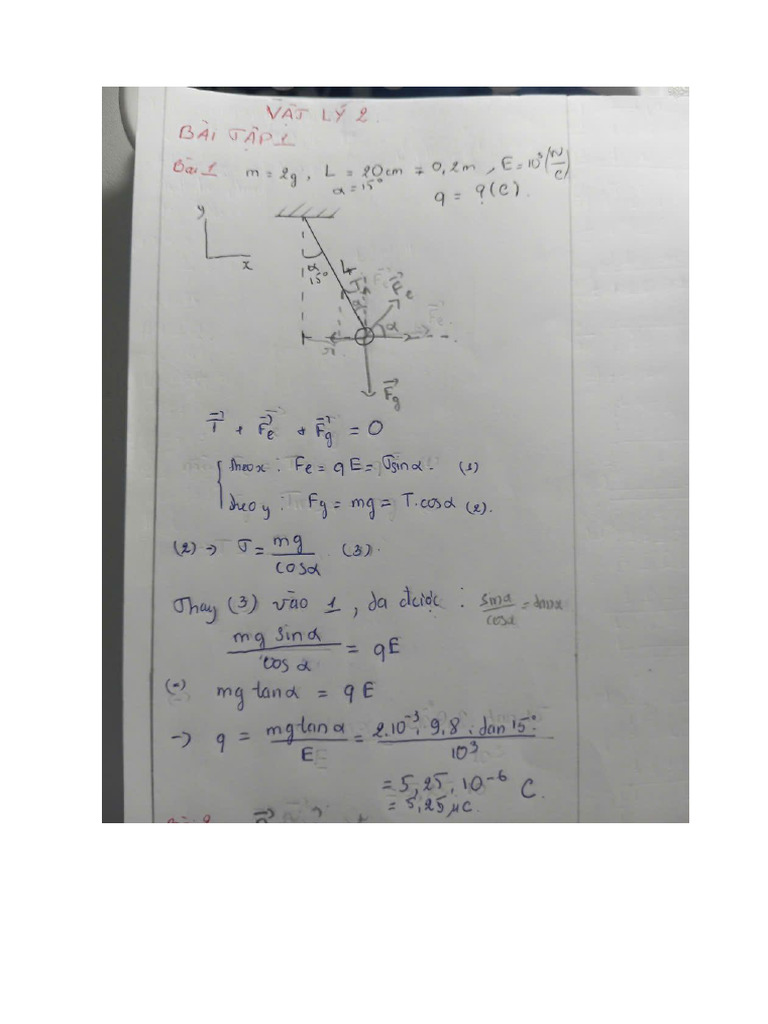 VẬT LÝ 2.
BÀI TẬP 1
Bài 1 m = 2g, L = 20cm = 0,2m, E = 10³ (N/C)
α = 15° q = ? (C).
y
x
α
15°
L
α
F⃗e
α
F⃗g
T⃗ + F⃗e + F⃗g = 0
theo x : Fe = qE = Tsinα. (1)
theo y : Fg = mg = T.cosα (2).
(2) → T = mg/cosα (3).
Thay (3) vào 1, ta được : sinα/cosα = tanα
mg sinα/cosα = qE
(=) mg tanα = qE
→ q = mg tanα/E = 2.10⁻³. 9,8. tan 15°/10³
= 5,25. 10⁻⁶ C.
= 5,25 μC.